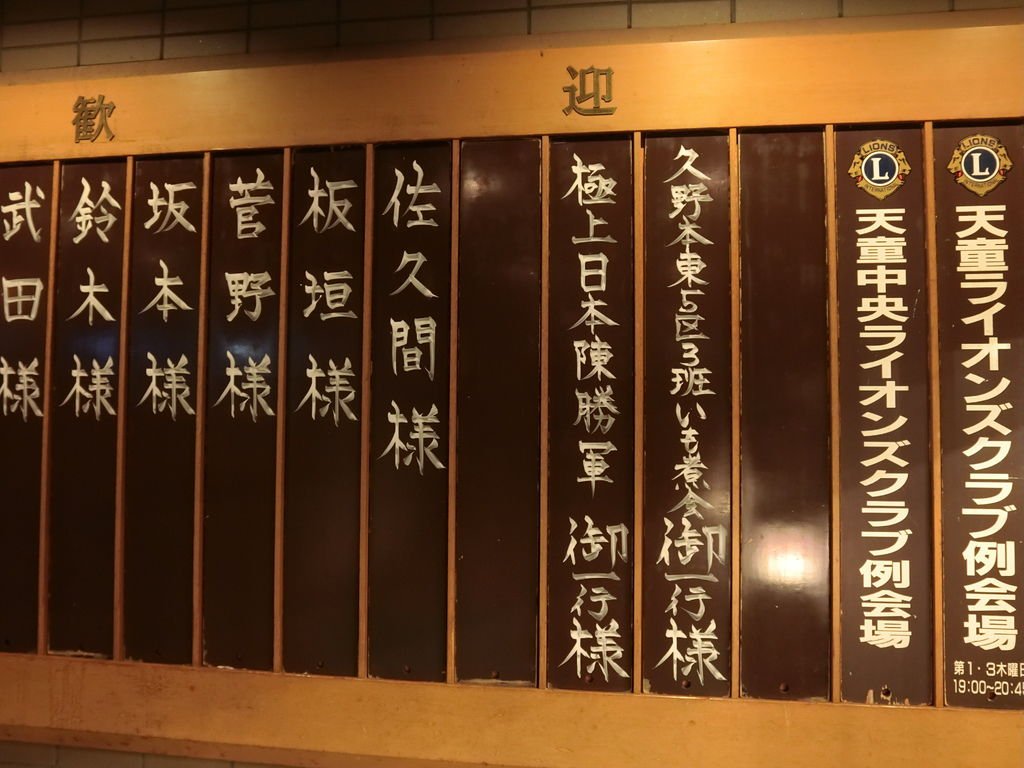 歓迎
LIONS
L
INTERNATIONAL
天童ライオンズクラブ例会場
第1・3木曜日
19:00~20:45
LIONS
L
INTERNATIONAL
天童中央ライオンズクラブ例会場
久野本東5区3班いも煮会御一行様
極上日本陳勝軍御一行様
佐久間様
板垣様
菅野様
坂本様
鈴木様
武田様